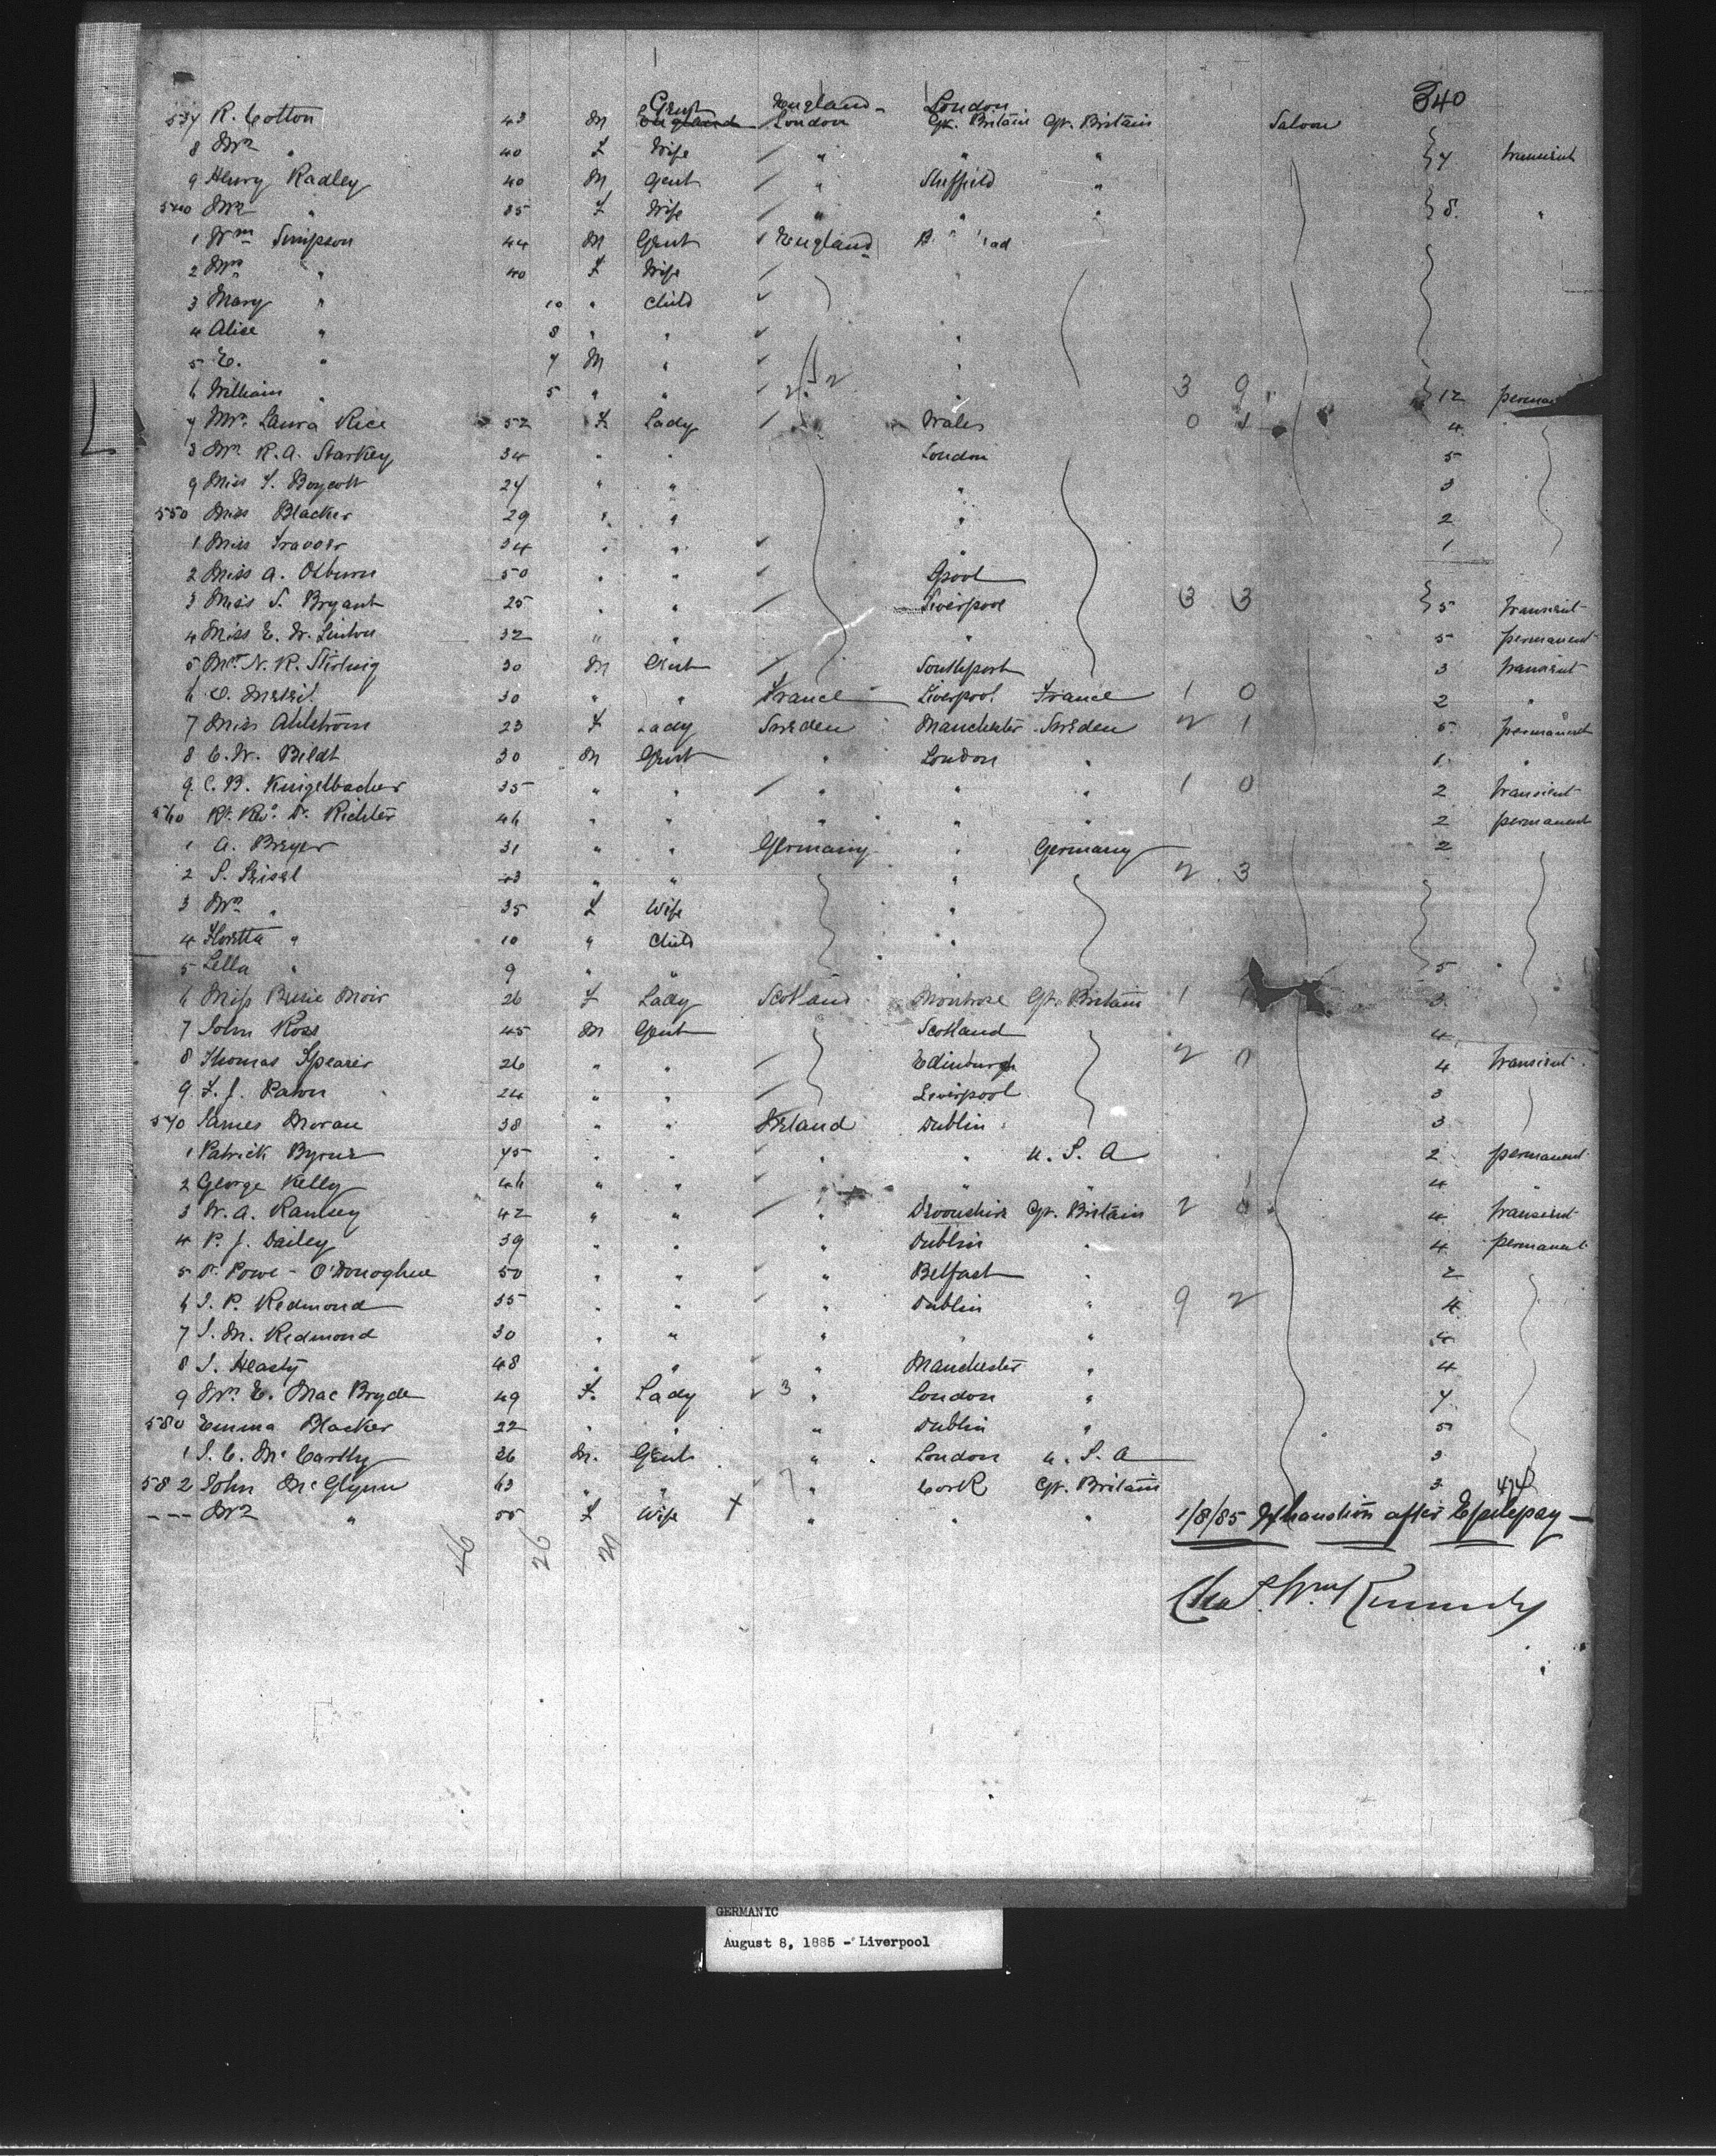 340
Gent England London
537 R. Cotton 43 M England London Gt. Britain Gt. Britain Saloon
8 Mrs " 40 F Wife " " " 7 transient
9 Henry Radley 40 M Gent " Sheffield "
540 Mrs " 35 F Wife " " " 8 "
1 Wm Simpson 44 M Gent England
2 Mrs " 40 F Wife "
3 Mary " 10 " Child
4 Alice " 8 " " "
5 E. " 7 M " "
6 William " 5 " " " 3 9 12
7 Mrs. Laura Rice 52 F Lady Wales 0 1 4
8 Mrs R. A. Starkey 34 " " London 5
9 Miss F. Boycott 24 " " " 3
550 Miss Blacker 29 " " " 2
1 Miss 34 " " " 1
2 Miss A. 50 " "
3 Miss S. Bryant 25 " " Liverpool 3 3 5 transient
4 Miss E. W. Linton 32 " " " 5 permanent
5 Mr N. R. Stirling 30 M Gent Southport 3 transient
6 30 " " France Liverpool France 1 0 2 "
7 Miss Ahlström 23 F Lady Sweden Manchester Sweden 2 1 5 permanent
8 C. W. Beldt 30 M Gent " London " 1 "
9 C. B. 35 " " " " " 1 0 2 transient
560 Rt. Revd. Dr. Richter 46 " " " " " 2 permanent
1 A. Breyer 31 " " Germany " Germany 2
2 S. 43 " " " 2 3
3 Mrs " 35 F Wife "
4 " 10 " Child "
5 Lella " 9 " " 5
6 Miss Moir 26 F Lady Scotland Montrose Gt. Britain 1 1 3
7 John Ross 45 M Gent Scotland 4
8 Thomas 26 " " Edinburgh 2 4 transient
9 F. J. 24 " " Liverpool 3
570 James Moran 38 " " Ireland Dublin 3
1 Patrick Byrne 45 " " " " U. S. A 2 permanent
2 George Kelly 46 " " " " 4 "
3 W. A. Ramsey 42 " " " Devonshire Gt. Britain 2 0 4 transient
4 P. J. Dailey 39 " " " Dublin " 4 permanent
5 Dr. Powe - O'Donoghue 50 " " " Belfast " 2
6 J. P. Redmond 35 " " " Dublin " 9 2 4
7 J. M. Redmond 30 " " " " " 4
8 J. Heasty 48 " " " Manchester " 4
9 Mrs E. Mac Bryde 49 F. Lady 3 " London " 7
580 Emma Blacker 22 " " " Dublin " 5
1 J. C. McCarthy 36 M. Gent " London U. S. A 3
582 John McGlynn 63 " " " Cork Gt. Britain 3 474
--- Mrs " 55 F Wife + " " " 1/8/85 Exhaustion after Epilepsy -
46 26 20
Chas. Wm Kennedy
GERMANIC
August 8, 1885 - Liverpool